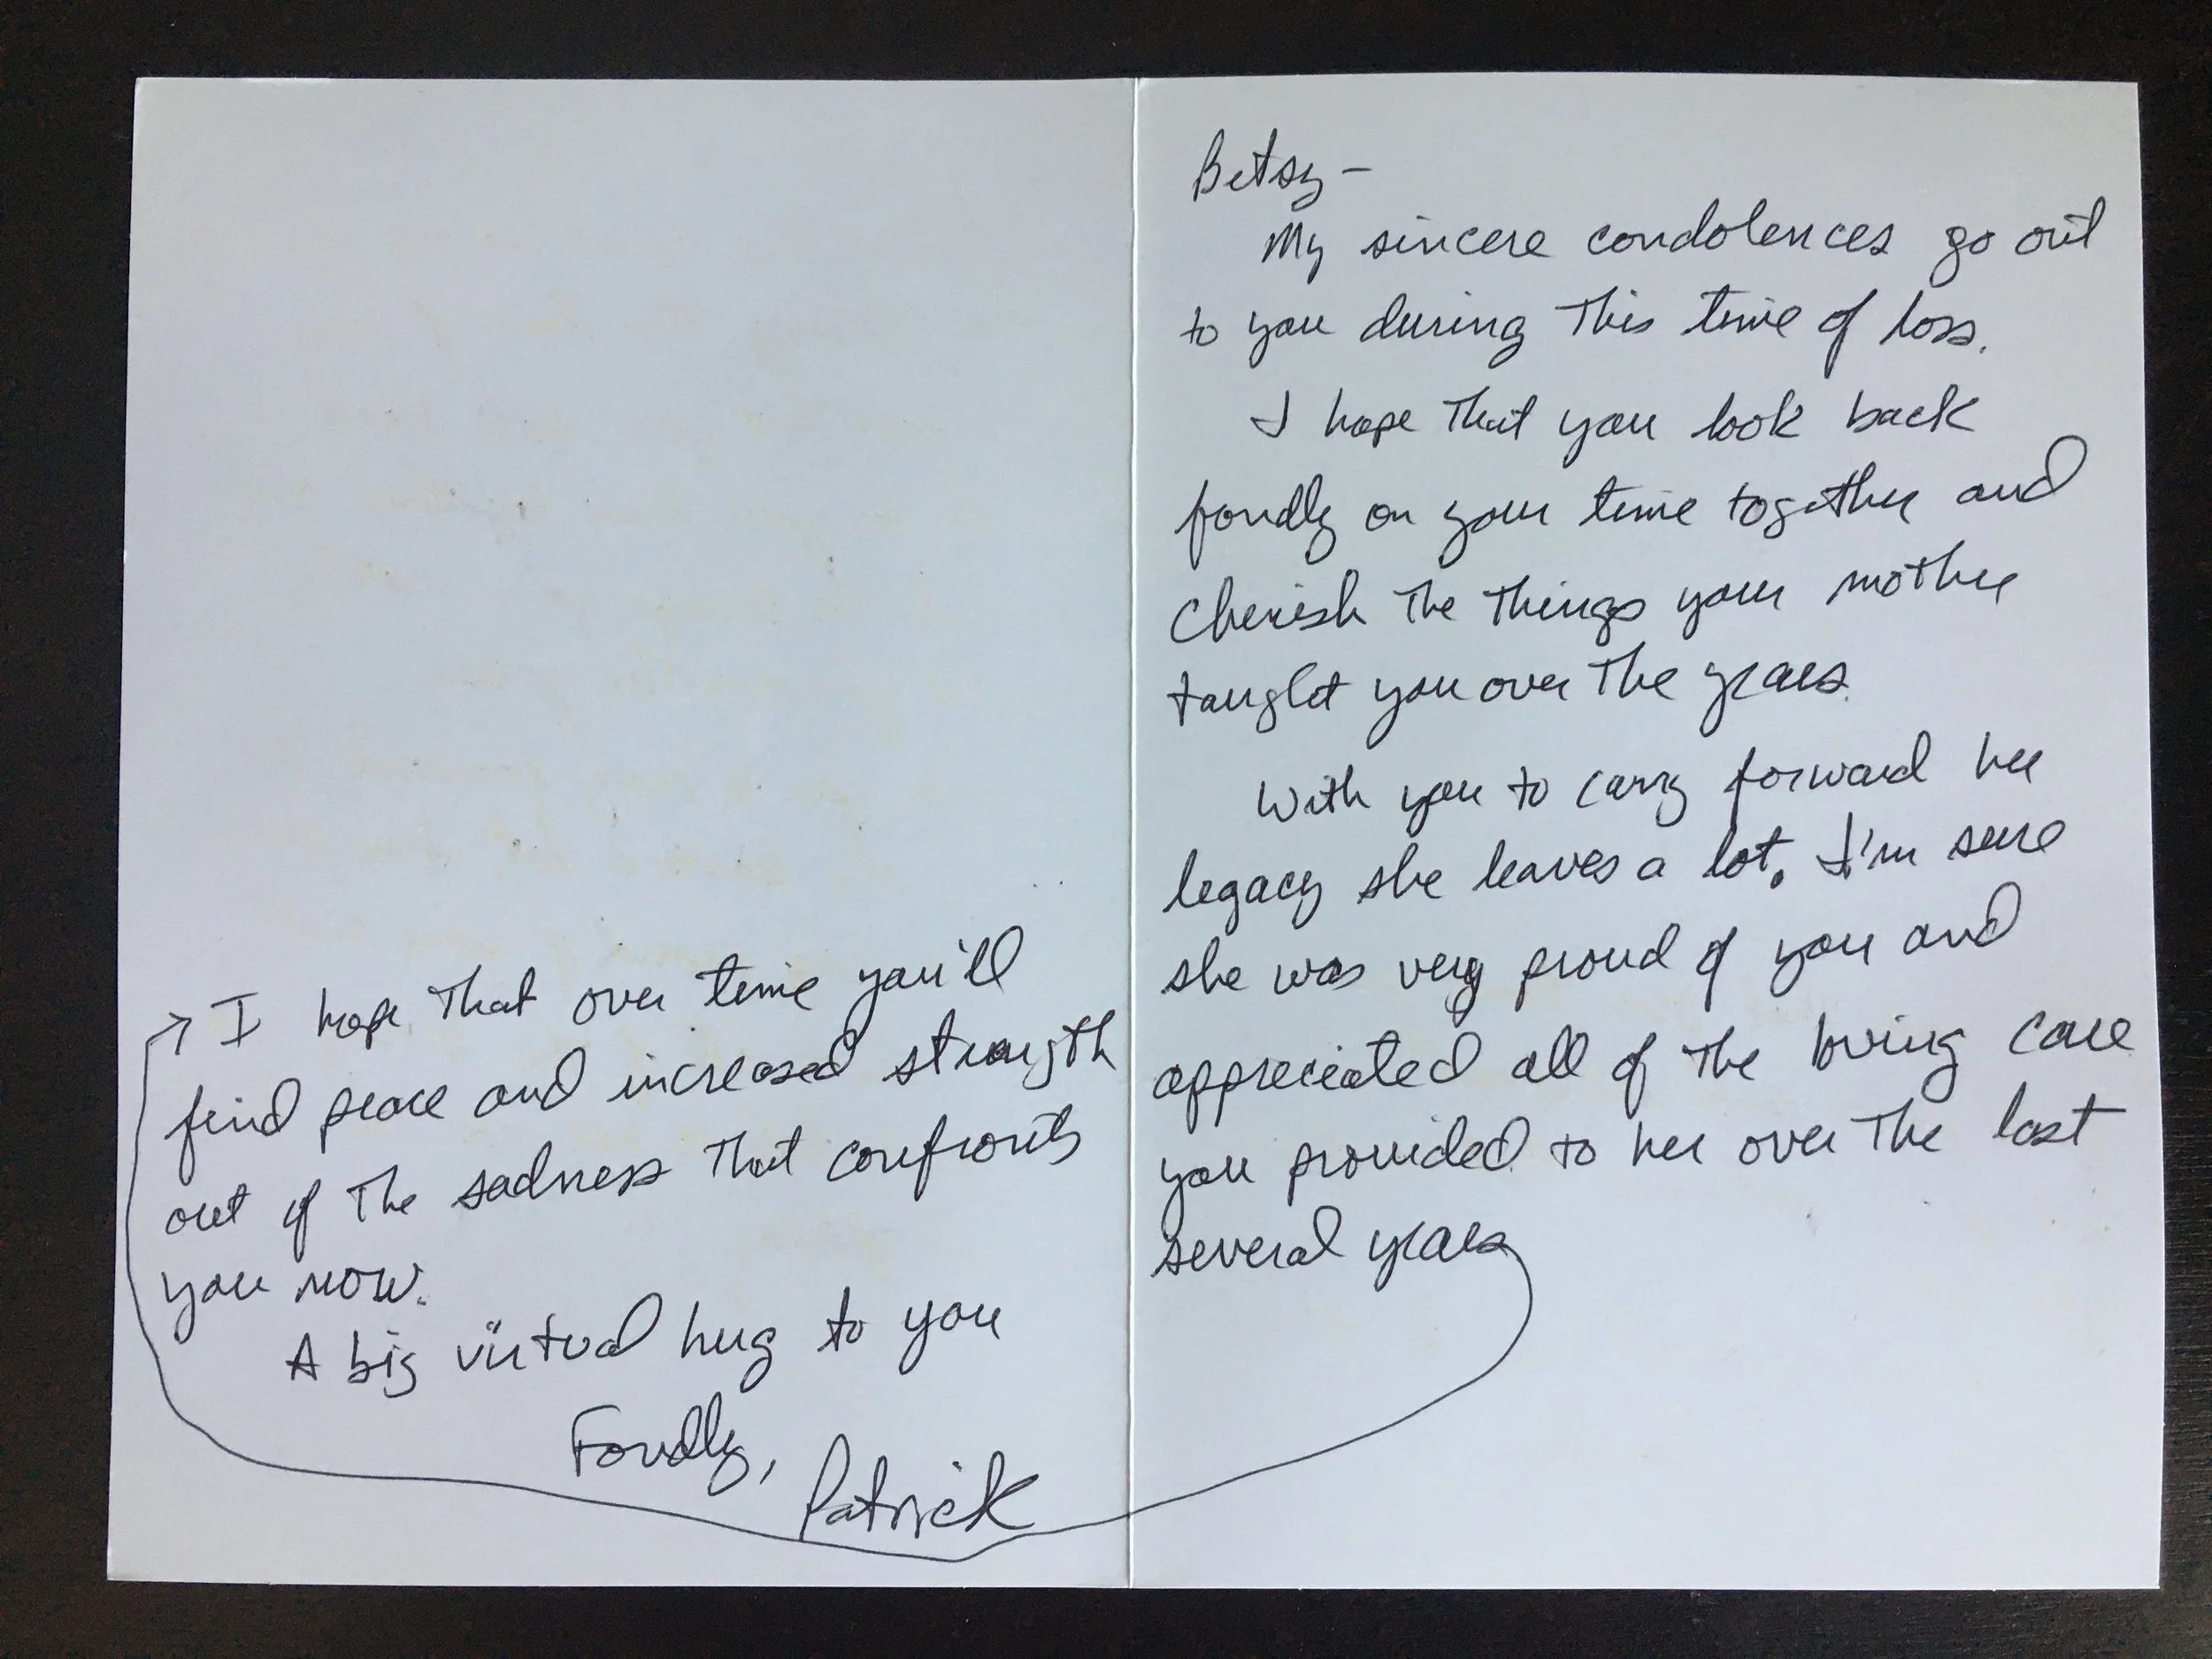 Betsy –
My sincere condolences go out
to you during This time of loss.
I hope That you look back
fondly on your time together and
Cherish The Things your mother
taught you over The years.
With you to carry forward her
legacy she leaves a lot. I'm sure
she was very proud of you and
appreciated all of The loving care
you provided to her over The last
several years
→ I hope That over time you'll
find peace and increased strength
out of The sadness That confronts
you now.
A big virtual hug to you
Fondly,
Patrick